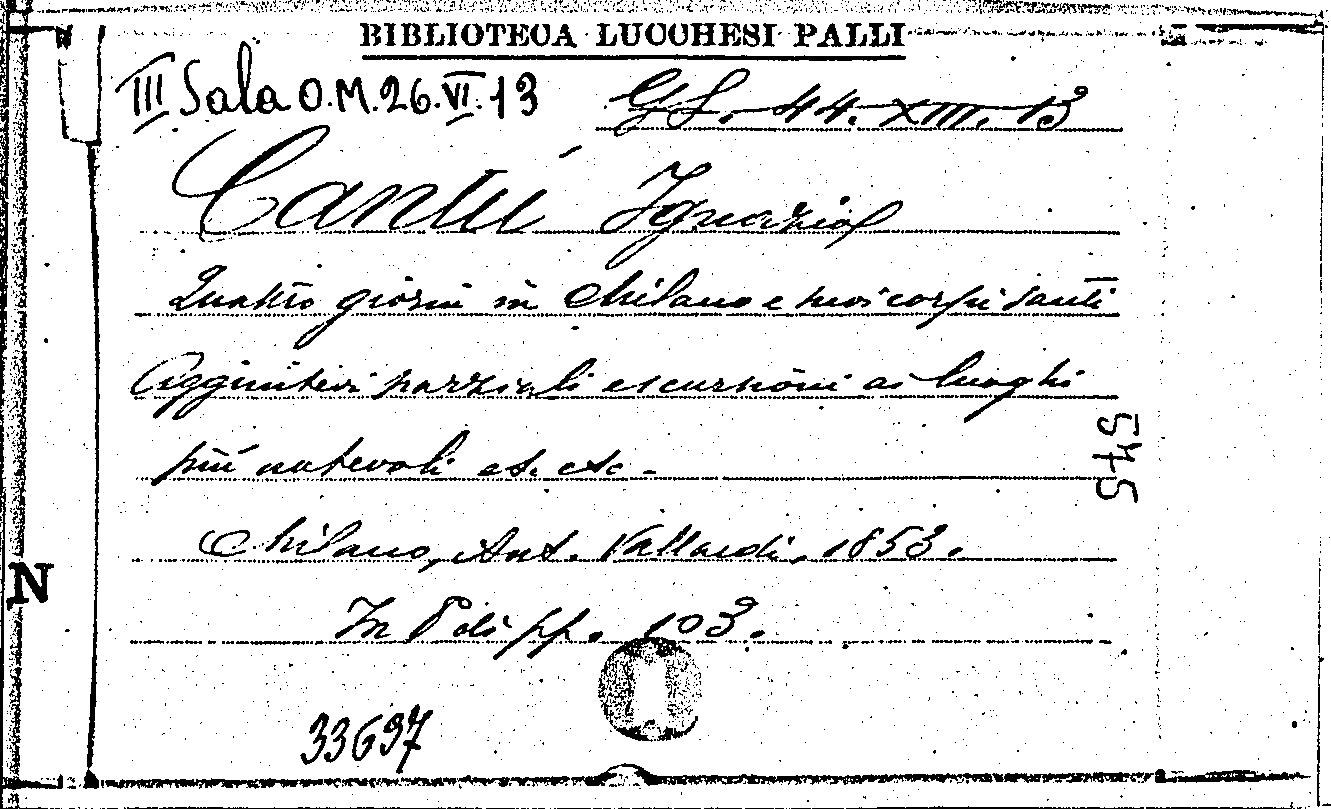 BIBLIOTECA LUCCHESI PALLI
III Sala O.M.26.VI.13 G.S. 44. XIII. 13
Cantù Ignazio
Quattro giorni in Milano e suoi corpi santi
Aggiuntevi parziali escursioni ai luoghi
più notevoli ec. etc.
Milano, Ant. Vallardi, 1853.
In 8° di pp. 103.
545
N
33637